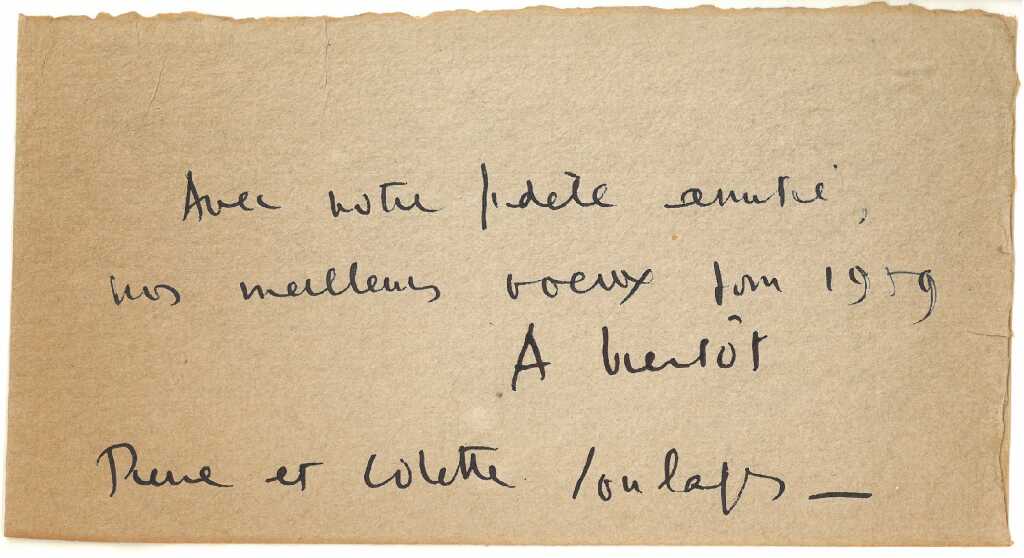 Avec notre fidèle amitié,
nos meilleurs voeux pour 1959
A bientôt
Pierre et Colette Soulages —